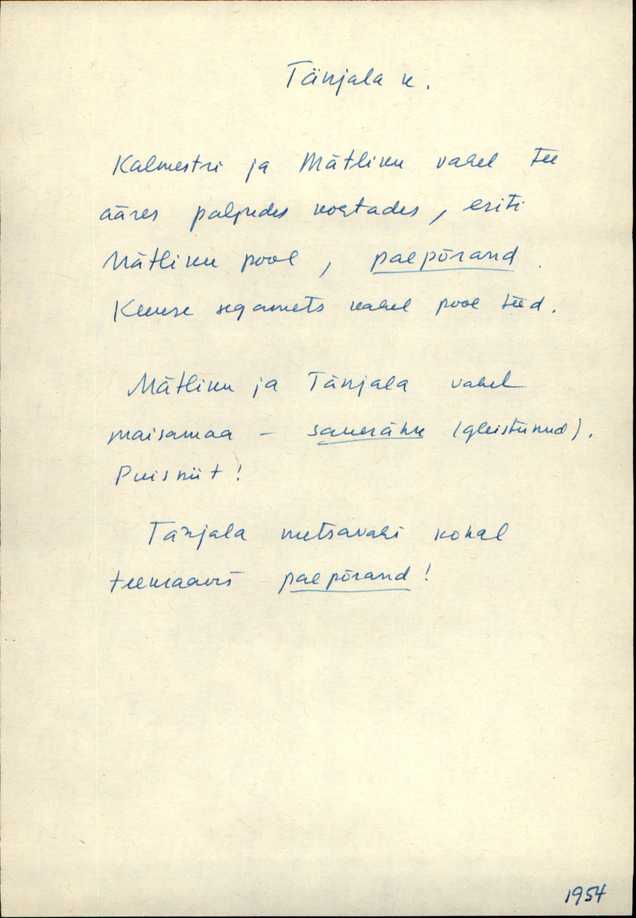 Tänjala k.
Kalmestri ja Mätliku vahel tee
ääres paljudes kohtades, eriti
Mätliku pool, paepõrand.
segamets kahel pool teed.
Mätliku ja Tänjala vahel
maisamaa – sauerähk (gleistunud).
Puisniit!
Tänjala metsavahi kohal
teekraavis paepõrand!
1954